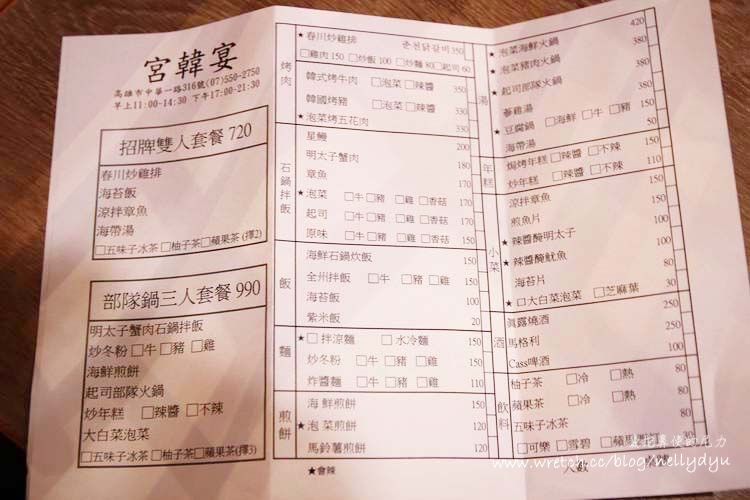 宮韓宴
高雄市中華一路316號(07)550-2750
早上11:00-14:30 下午17:00-21:30
招牌雙人套餐 720
春川炒雞排
海苔飯
涼拌章魚
海帶湯
□五味子冰茶□柚子茶□蘋果茶(擇2)
部隊鍋三人套餐 990
明太子蟹肉石鍋拌飯
炒冬粉 □牛 □豬 □雞
海鮮煎餅
起司部隊火鍋
炒年糕 □辣醬 □不辣
大白菜泡菜
□五味子冰茶□柚子茶□蘋果茶(擇3)
烤肉
★春川炒雞排 춘천닭갈비 350
□雞肉 150 □炒飯 100 □炒麵 80 □起司 60
韓式烤牛肉 □泡菜 □辣醬 350
韓國烤豬 □泡菜 □辣醬 330
★泡菜烤五花肉 330
石鍋拌飯
星鰻 200
明太子蟹肉 180
章魚 170
★泡菜 □牛 □豬 □雞 □香菇 170
起司 □牛 □豬 □雞 □香菇 170
原味 □牛 □豬 □雞 □香菇 150
飯
海鮮石鍋炊飯 150
全州拌飯 □牛 □豬 □雞 160
海苔飯 100
紫米飯 20
麵
★□拌涼麵 □水冷麵 150
炒冬粉 □牛 □豬 □雞 150
炸醬麵 □牛 □豬 □雞 110
煎餅
海鮮煎餅 150
★泡菜煎餅 120
馬鈴薯煎餅 150
★會辣
湯
★泡菜海鮮火鍋 420
★泡菜豬肉火鍋 380
★起司部隊火鍋 380
蔘雞湯 350
★豆腐鍋 □海鮮 □牛 □豬 150
海帶湯 50
年糕
焗烤年糕 □辣醬 □不辣 150
炒年糕 □辣醬 □不辣 130
小菜
涼拌章魚 150
煎魚片 150
★辣醬醃明太子 100
★辣醬醃魷魚 100
海苔片 50
★□大白菜泡菜 □芝麻葉 30
酒
真露燒酒 250
馬格利 250
Cass啤酒 100
飲料
柚子茶 □冷 □熱 80
蘋果茶 □冷 □熱 80
五味子冰茶 80
□可樂 □雪碧 □蘋果 30
www.wretch.cc/blog/nellydyu
人數